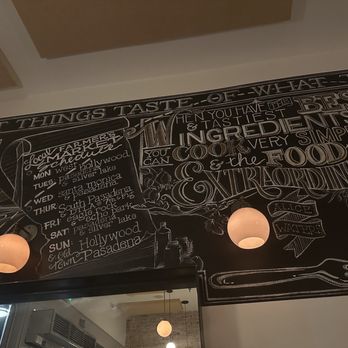 THINGS TASTE OF WHAT
Local FARMER'S
MARKET
Schedule
MON: West Hollywood
TUES:
& silver lake
WED: santa monica
THUR: South Pasadena
FRI: echo park
SAT:
silver lake
SUN: Hollywood
& old town Pasadena
WHEN YOU HAVE THE BEST
& TASTIEST
INGREDIENTS
YOU CAN COOK VERY SIMPLY
& the FOOD
EXTRAORDIN
ALICE
WATERS